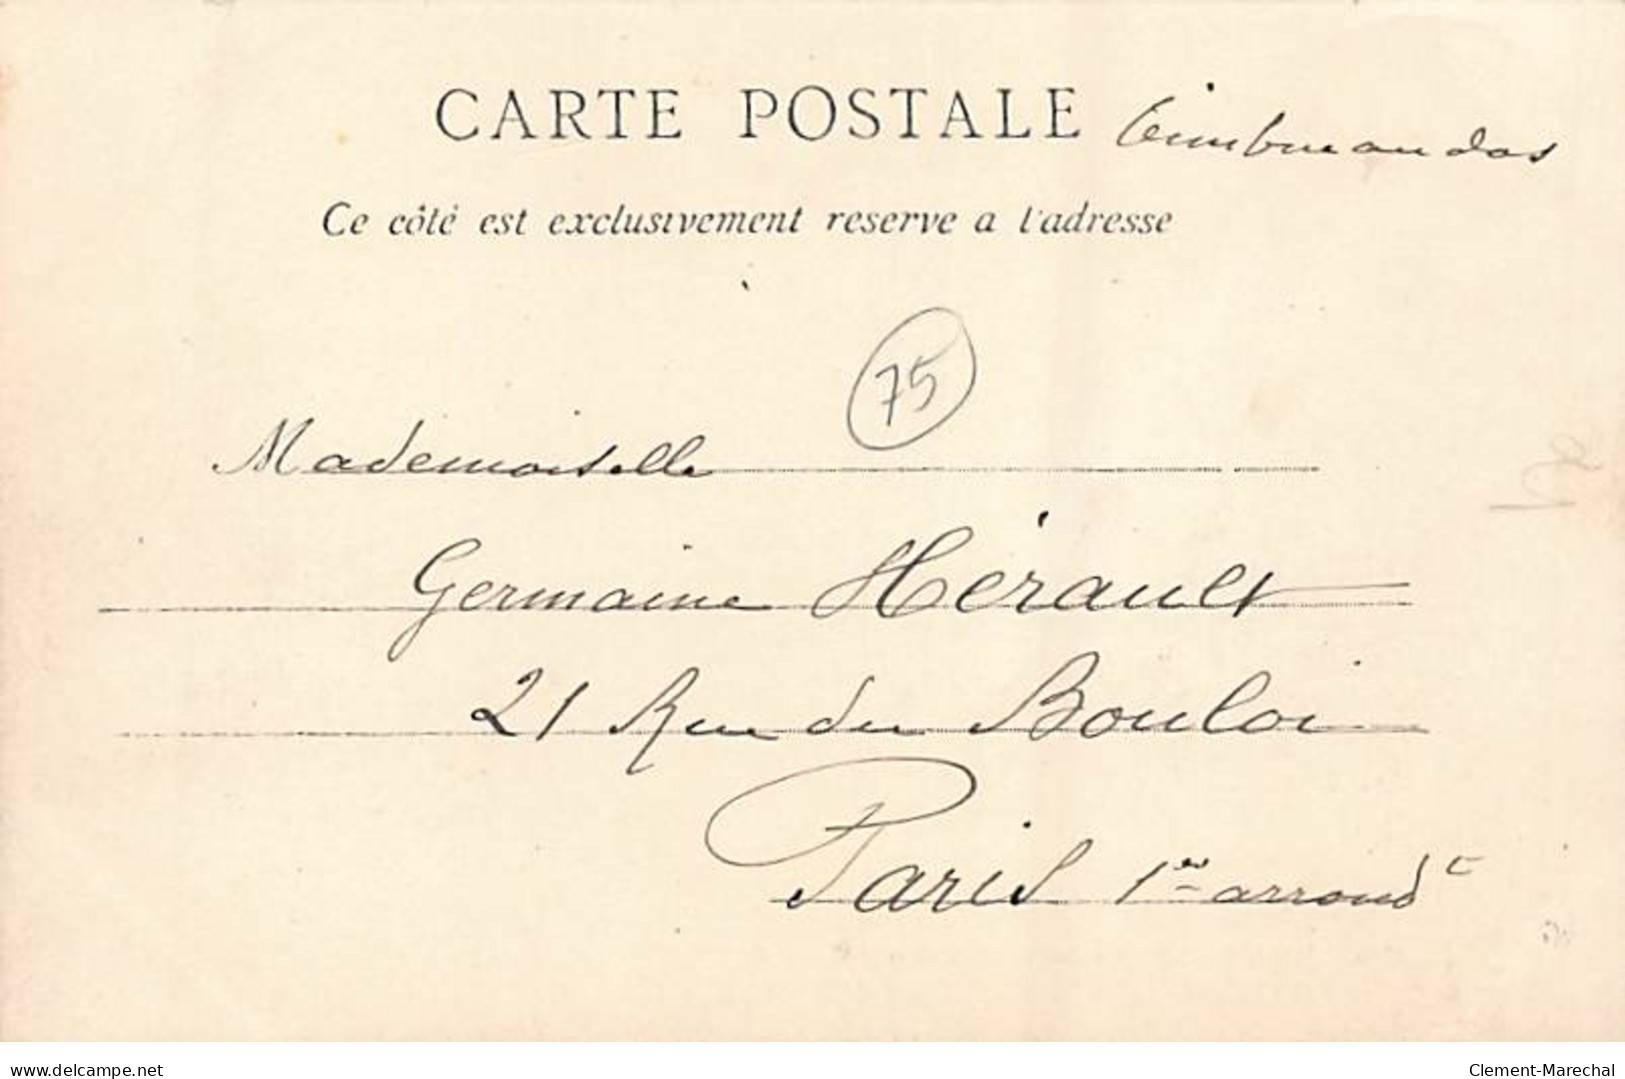 CARTE POSTALE Timbre au dos
Ce côté est exclusivement reserve a l'adresse
75
Mademoiselle
Germaine Hérault
21 Rue du Bouloi
Paris 1er arrondt
www.delcampe.net
Clement-Marechal